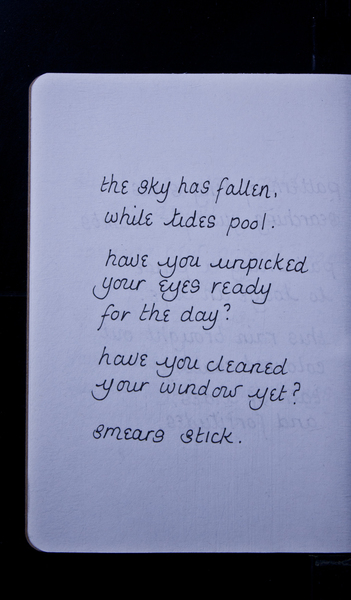 the sky has fallen,
while tides pool.
have you unpicked
your eyes ready
for the day?
have you cleaned
your window yet?
smears stick.